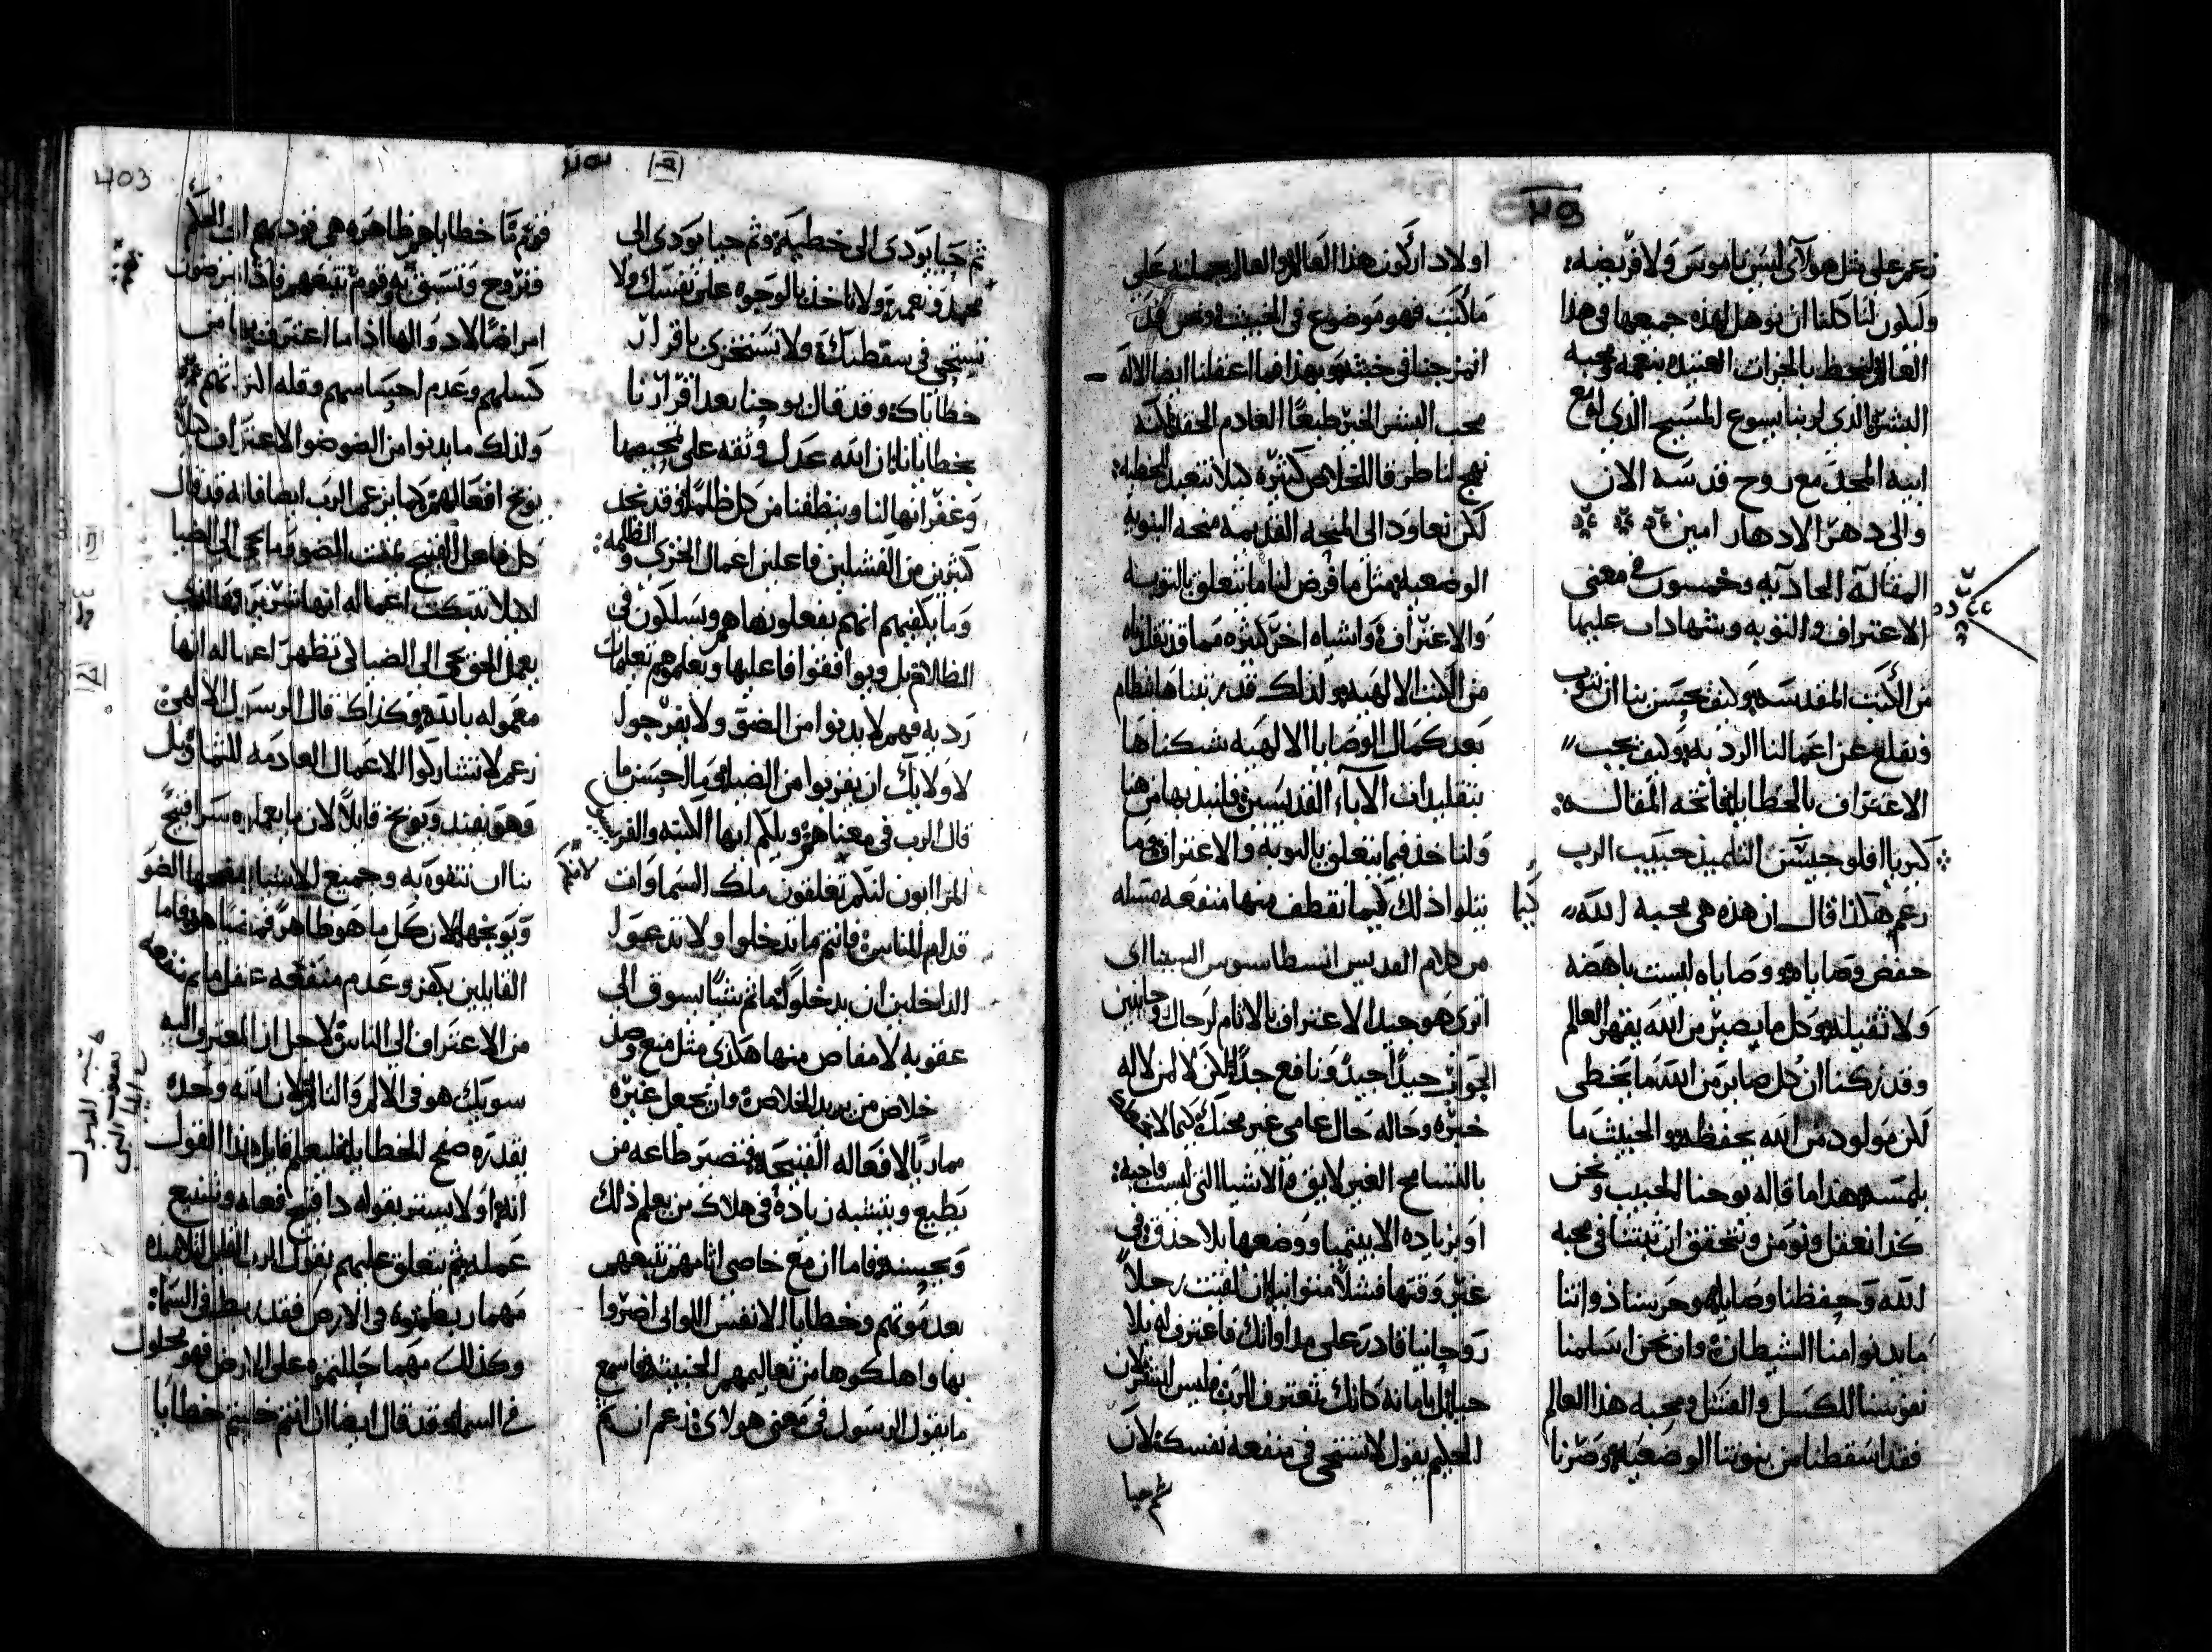 زعم على مثل هولآي ليس ناموس ولا فريضه:
وليكون لنا كلنا ان نوهل لهذه جميعها في هذا
العالم ونحظى بالخيرات العتيده بنعمه ومحبه
البشر الذي لربنا يسوع المسيح الذي له مع
ابيه المجد مع روح قدسه الان
والى دهر الادهار امين
المقالة الحاديه وخمسون في معنى
الاعتراف والتوبه وشهادات عليها
من الكتب المقدسه وكيف يحسن بنا ان نتوب
ونقلع عن اعمالنا الرديه وكيف يجب
الاعتراف بالخطايا فاتحه المقاله:
كيريا افلوجيسن التلميذ حبيب الرب
زعم هكذا قال ان هذه هي محبه الله
حفض وصاياه ووصاياه ليست باهضه
ولا ثقيله وكل ما يصير من الله يقهر العالم
وقد زكنا ان كل صاير من الله ما يخطي
لكن مولود من الله يحفظه والخبيث ما
يلمسه هذا ما قاله يوحنا الحبيب ونحن
كذا نعقل ونومن ونتحقق ان ثبتنا في محبه
الله وحفظنا وصاياه وحرسنا ذواتنا
ما يدنوا منا الشيطان وان نحن اسلمنا
نفوسنا للكسل والفشل ومحبه هذا العالم
فقد اسقطنا من بنوتنا الوضعيه وصرنا
اولاد اركون هذا العالم والعالم بجملته على
ما كتب فهو موضوع في الخبيث ونحن قد
امتزجنا في خبثه وبهذا فما اغفلنا ايضا الاله
محب البشر الخير طبعا العادم الحقد لكنه
نهج لنا طرقا للخلاص كثيره كيلا نتعبد للخطيه:
لكن نعاود الى المنحه القديمه منحه البنوه
الوضعيه مثل ما فرض لنا ما يتعلق بالتوبه
والاعتراف واشياء اخر كثيره مما قد نقلناه
من الكتب الالهيه ولذلك قد رتبناها بنظام
بعد كمال الوصايا الالهيه شبكناها
بتقليدات الآباء القديسين فلنبد بها من هنا
ولناخذ فيما يتعلق بالتوبه والاعتراف وما
يتلوا ذلك كيما نقطف منها منفعه مسله
كيما
من كلام القديس انسطاسيوس السيناي
اترى هو جيد الاعتراف بالاثام لرجال روحانيين
الجواب جيدا جيد ونافع جدا لكن لا لمن لا له
خبره وحاله حال عامي غير محنك كيلا
بالتسامح الغير لايق والاشيا التي ليست واجبه:
او بزياده الابيتيميا ووضعها بلا حذق في
غير وقتها فشلا متوانيا ان لقيت رجلا
روحانيا قادر على مداواتك فاعترف له بلا
حيا بل بامانه كانك تعترف للرب وليس للبشر لان
الحكيم يقول لا تستحي في منفعه نفسك لان
ثم حيا
403
ثم حيا يودي الى خطيه وثم حيا يودي الى
مجد ونعمه ولا تاخذ بالوجوه على نفسك ولا
تستحي في سقطتك ولا تستخزي باقرار
خطاياك وقد قال يوحنا بعد اقرارنا
بخطايانا ان الله عدل وثقه على تمحيصها
وغفرانها لنا وينظفنا من كل ظلم وقد نجد
كثيرين من الفشلين فاعلين اعمال الخزي والظلمه:
وما يكفيهم انهم يفعلونها هم ويسلكون في
الظلام بل ويوافقوا فاعليها ويعلموهم تعليمات
رديه فهم لا يدنوا من الضو ولا يفرجوا
لاوليك ان يقربوا من الضيا وما احسن ما
قال الرب في معناهم ويلكم ايها الكتبه والفريسيين
المراايون لانكم تغلقون ملك السماوات
لانكم
قدام الناس فانتم ما تدخلوا ولا تدعوا
الداخلين ان يدخلوا ما ثم شيا يسوق الى
عقوبه لا مفاص منها هكذي مثل منع وصد
خلاص من يريد الخلاص وان يجعل غيره
مماريا لافعاله القبيحه فتصير طاعه من
يطيع ويتشبه زيادة في هلاك من يعلم ذلك
ويحسنه فاما ان مع خاصي اثامهم تتبعهم
بعد موتهم وخطايا الانفس اللواتي اضروا
بها واهلكوها من تعاليمهم الخبيثه فاسمع
ما يقول الرسول في معنى هولاي زعم ان ثم
قوم ثما خطاياهم ظاهره هي تودي بهم الى الحكم
فتروح وتسبق به وقوم تتبعهم فاذا يمرضون
امراضا لا دوا لها اذا ما اعترفوا بها من
كسلهم وعدم احساسهم وقله التزامهم
ولذلك ما يدنوا من الضو ضو الاعتراف كيلا
يوبخ افعالهم كما زعم الرب ايضا فانه قد قال
كل فاعل القبيح يمقت الضو وما يجي الى الضيا
لكيلا تبكت اعماله انها شريره وما الذي
يعمل الحق يجي الى الضيا لكي تظهر اعماله انها
معموله بالله وكذاك قال الرسول الالهي
زعم لا تشاركوا الاعمال العادمه الثمار بل
وهو يفند ويوبخ قايلا لان ما يعملوه سرا قبيح
بنا ان نتفوه به وجميع الاشيا يفضحها الضو
ويوبخها لان كل ما هو ظاهر فهو ضيا هو فاما
القايلين بكفر وعدم منفعه عقل ما ثم منفعه
من الاعتراف الى الناس لاجل ان المعترف اليه
سويك هو في الالم والنا لان الله وحده
بقدره صفح الخطايا فليعلم قايل هذا القول
انه اولا يستر بقوله ذا قبح فعاله وشنيع
عمله ثم يتعلق عليهم بقول الرب القايل لتلاميذه
مهما ربطتموه في الارض فقد ربط في السماء:
وكذلك مهما حللتموه على الارض فهو محلول
في السماء وقد قال ايضا ان انتم خليتم خطايا